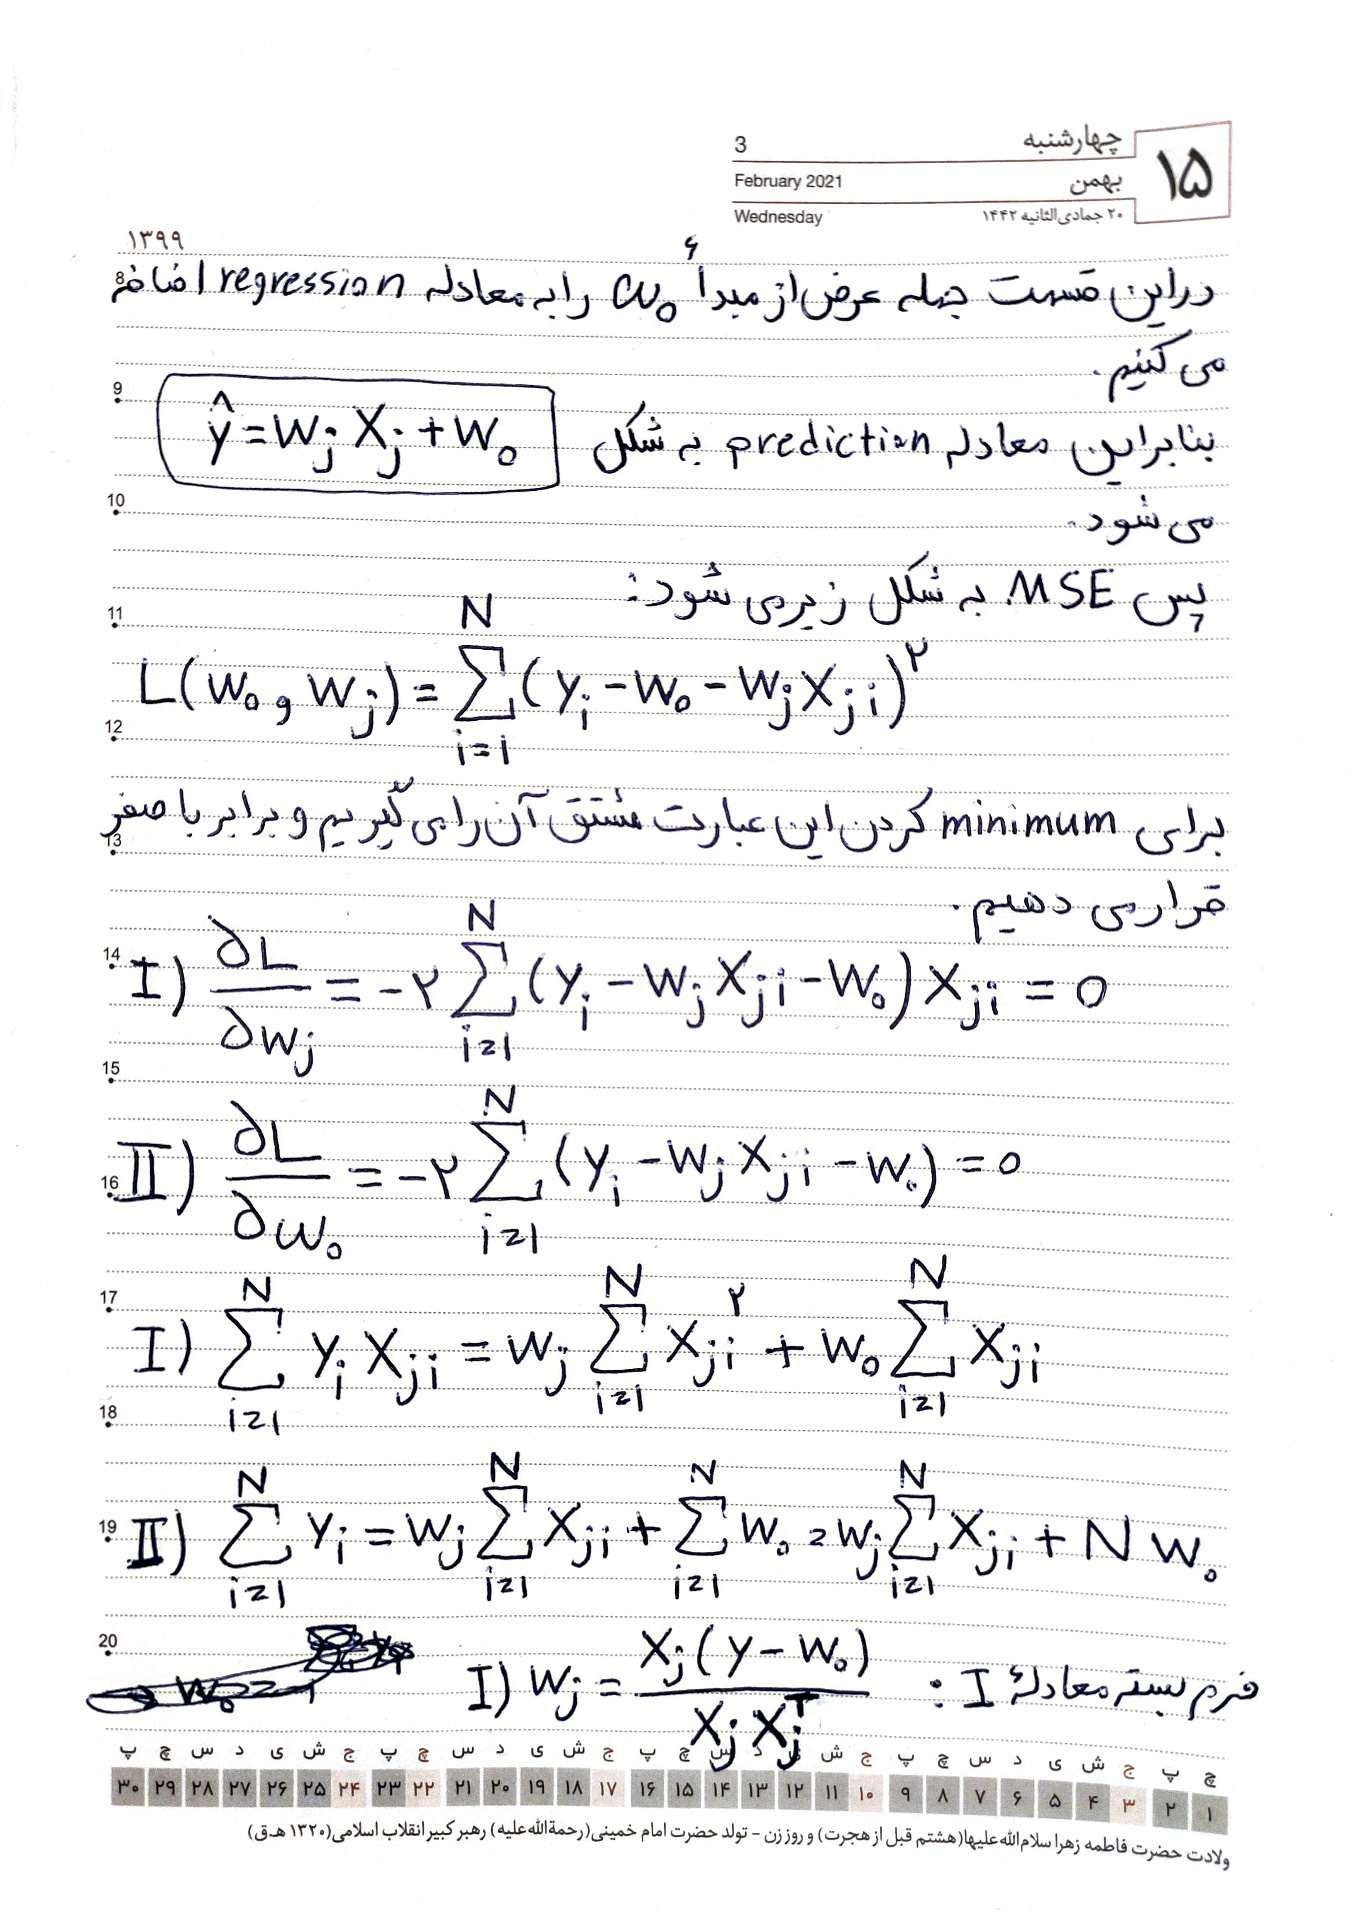 ۱۵
چهارشنبه
بهمن
۲۰ جمادی‌الثانیه ۱۴۴۲
3
February 2021
Wednesday
۱۳۹۹
در این قسمت جمله عرض از مبدأ w₀ را به معادله regression اضافه
8
می کنیم.
9
بنابراین معادله prediction به شکل ŷ = wⱼ xⱼ + w₀
10
می شود.
پس MSE به شکل زیر می شود:
11
L(w₀ , wⱼ) = ∑_{i=1}^{N} (yᵢ - w₀ - wⱼ xⱼᵢ)^۲
12
برای minimum کردن این عبارت مشتق آن را می گیریم و برابر با صفر
13
قرار می دهیم.
14
I) ∂L/∂wⱼ = -۲ ∑_{i=1}^{N} (yᵢ - wⱼ xⱼᵢ - w₀) xⱼᵢ = 0
15
16
II) ∂L/∂w₀ = -۲ ∑_{i=1}^{N} (yᵢ - wⱼ xⱼᵢ - w₀) = 0
17
I) ∑_{i=1}^{N} yᵢ xⱼᵢ = wⱼ ∑_{i=1}^{N} xⱼᵢ^۲ + w₀ ∑_{i=1}^{N} xⱼᵢ
18
19
II) ∑_{i=1}^{N} yᵢ = wⱼ ∑_{i=1}^{N} xⱼᵢ + ∑_{i=1}^{N} w₀ = wⱼ ∑_{i=1}^{N} xⱼᵢ + N w₀
20
فرم بسته معادلۀ I : I) wⱼ = xⱼ(y - w₀) / xⱼ xⱼᵀ
چ پ ج ش ی د س چ پ ج ش ی د س چ پ ج ش ی د س چ پ ج ش ی د س چ پ
۱ ۲ ۳ ۴ ۵ ۶ ۷ ۸ ۹ ۱۰ ۱۱ ۱۲ ۱۳ ۱۴ ۱۵ ۱۶ ۱۷ ۱۸ ۱۹ ۲۰ ۲۱ ۲۲ ۲۳ ۲۴ ۲۵ ۲۶ ۲۷ ۲۸ ۲۹ ۳۰
ولادت حضرت فاطمه زهرا سلام‌الله‌علیها(هشتم قبل از هجرت) و روز زن - تولد حضرت امام خمینی(رحمةالله‌علیه) رهبر کبیر انقلاب اسلامی(۱۳۲۰ هـ.ق)